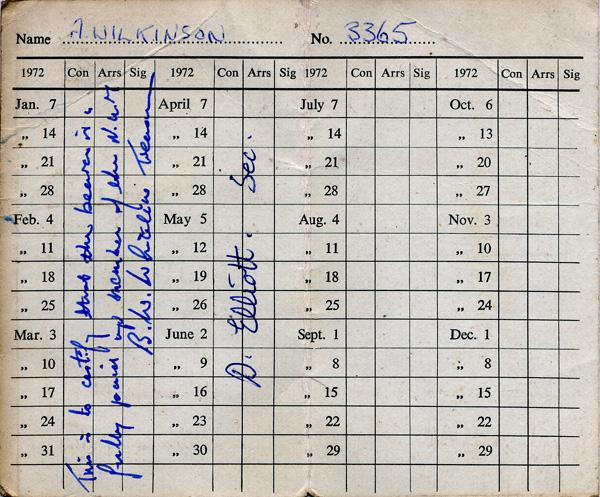 Name A WILKINSON No. 3365
1972 Con Arrs Sig 1972 Con Arrs Sig 1972 Con Arrs Sig 1972 Con Arrs Sig
Jan. 7 April 7 July 7 Oct. 6
„ 14 „ 14 „ 14 „ 13
„ 21 „ 21 „ 21 „ 20
„ 28 „ 28 „ 28 „ 27
Feb. 4 May 5 Aug. 4 Nov. 3
„ 11 „ 12 „ 11 „ 10
„ 18 „ 19 „ 18 „ 17
„ 25 „ 26 „ 25 „ 24
Mar. 3 June 2 Sept. 1 Dec. 1
„ 10 „ 9 „ 8 „ 8
„ 17 „ 16 „ 15 „ 15
„ 24 „ 23 „ 22 „ 22
„ 31 „ 30 „ 29 „ 29
This is to certify that the bearer is a
fully paid up member of the N.U.M
B. W.
D. Elliott. Sec.